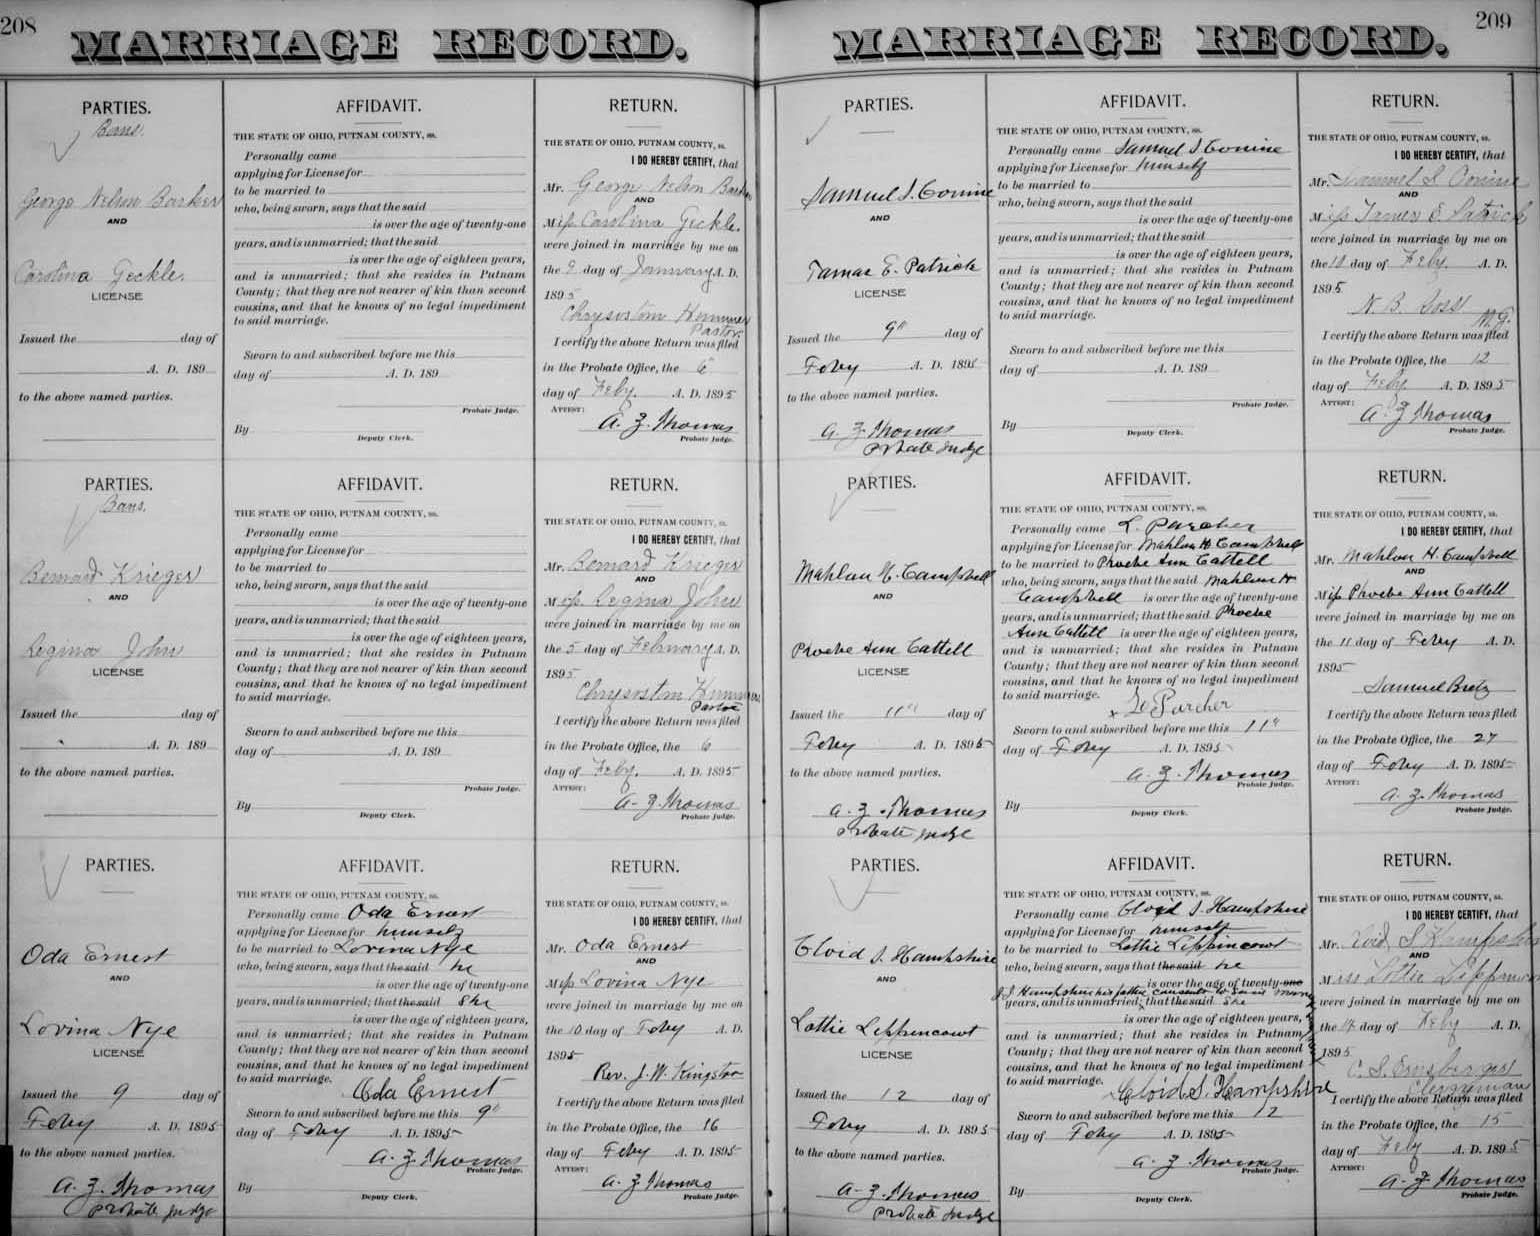 208
MARRIAGE RECORD.
PARTIES.
Bans.
George Nelson Barker
AND
Carolina Geckle.
LICENSE
Issued the day of
A. D. 189
to the above named parties.
AFFIDAVIT.
THE STATE OF OHIO, PUTNAM COUNTY, ss.
Personally came
applying for License for
to be married to
who, being sworn, says that the said
is over the age of twenty-one
years, and is unmarried; that the said
is over the age of eighteen years,
and is unmarried; that she resides in Putnam
County; that they are not nearer of kin than second
cousins, and that he knows of no legal impediment
to said marriage.
Sworn to and subscribed before me this
day of A. D. 189
Probate Judge.
By
Deputy Clerk.
RETURN.
THE STATE OF OHIO, PUTNAM COUNTY, ss.
I DO HEREBY CERTIFY, that
Mr. George Nelson Barker
AND
Miss Carolina Geckle.
were joined in marriage by me on
the 9 day of January A. D.
1895
Chrysostom Hummer
Pastor.
I certify the above Return was filed
in the Probate Office, the 6"
day of Feby. A. D. 1895
ATTEST:
A. Z. Thomas
Probate Judge.
PARTIES.
Bans.
Bernard Krieger
AND
Regina John
LICENSE
Issued the day of
A. D. 189
to the above named parties.
AFFIDAVIT.
THE STATE OF OHIO, PUTNAM COUNTY, ss.
Personally came
applying for License for
to be married to
who, being sworn, says that the said
is over the age of twenty-one
years, and is unmarried; that the said
is over the age of eighteen years,
and is unmarried; that she resides in Putnam
County; that they are not nearer of kin than second
cousins, and that he knows of no legal impediment
to said marriage.
Sworn to and subscribed before me this
day of A. D. 189
Probate Judge.
By
Deputy Clerk.
RETURN.
THE STATE OF OHIO, PUTNAM COUNTY, ss.
I DO HEREBY CERTIFY, that
Mr. Bernard Krieger
AND
Miss Regina John
were joined in marriage by me on
the 5 day of February A. D.
1895
Chrysostom Hummer
Pastor
I certify the above Return was filed
in the Probate Office, the 6
day of Feby. A. D. 1895
ATTEST:
A. Z. Thomas
Probate Judge.
PARTIES.
Oda Ernest
AND
Lovina Nye
LICENSE
Issued the 9 day of
Feby A. D. 1895
to the above named parties.
A. Z. Thomas
Probate Judge
AFFIDAVIT.
THE STATE OF OHIO, PUTNAM COUNTY, ss.
Personally came Oda Ernest
applying for License for himself
to be married to Lovina Nye
who, being sworn, says that the said he
is over the age of twenty-one
years, and is unmarried; that the said She
is over the age of eighteen years,
and is unmarried; that she resides in Putnam
County; that they are not nearer of kin than second
cousins, and that he knows of no legal impediment
to said marriage.
Oda Ernest
Sworn to and subscribed before me this 9"
day of Feby A. D. 1895
A. Z. Thomas
Probate Judge.
By
Deputy Clerk.
RETURN.
THE STATE OF OHIO, PUTNAM COUNTY, ss.
I DO HEREBY CERTIFY, that
Mr. Oda Ernest
AND
Miss Lovina Nye
were joined in marriage by me on
the 10 day of Feby A. D.
1895
Rev. J. W. Kingston
I certify the above Return was filed
in the Probate Office, the 16
day of Feby A. D. 1895
ATTEST:
A. Z. Thomas
Probate Judge.
209
MARRIAGE RECORD.
PARTIES.
Samuel S. Conine
AND
Tamar E. Patrick
LICENSE
Issued the 9" day of
Feby A. D. 1895
to the above named parties.
A. Z. Thomas
Probate Judge
AFFIDAVIT.
THE STATE OF OHIO, PUTNAM COUNTY, ss.
Personally came Samuel S Conine
applying for License for himself
to be married to
who, being sworn, says that the said
is over the age of twenty-one
years, and is unmarried; that the said
is over the age of eighteen years,
and is unmarried; that she resides in Putnam
County; that they are not nearer of kin than second
cousins, and that he knows of no legal impediment
to said marriage.
Sworn to and subscribed before me this
day of A. D. 189
Probate Judge.
By
Deputy Clerk.
RETURN.
THE STATE OF OHIO, PUTNAM COUNTY, ss.
I DO HEREBY CERTIFY, that
Mr. Samuel S Conine
AND
Miss Tamer E. Patrick
were joined in marriage by me on
the 10 day of Feby. A. D.
1895
N. B. M.G.
I certify the above Return was filed
in the Probate Office, the 12
day of Feby. A. D. 1895
ATTEST:
A. Z Thomas
Probate Judge.
PARTIES.
Mahlon H. Campbell
AND
Phoebe Ann Cattell
LICENSE
Issued the 11" day of
Feby A. D. 1895
to the above named parties.
A. Z. Thomas
Probate Judge
AFFIDAVIT.
THE STATE OF OHIO, PUTNAM COUNTY, ss.
Personally came L. Parcher
applying for License for Mahlon H Campbell
to be married to Phoebe Ann Cattell
who, being sworn, says that the said Mahlon H
Campbell is over the age of twenty-one
years, and is unmarried; that the said Phoebe
Ann Cattell is over the age of eighteen years,
and is unmarried; that she resides in Putnam
County; that they are not nearer of kin than second
cousins, and that he knows of no legal impediment
to said marriage.
Parcher
Sworn to and subscribed before me this 11"
day of Feby A. D. 1895
A. Z. Thomas
Probate Judge.
By
Deputy Clerk.
RETURN.
THE STATE OF OHIO, PUTNAM COUNTY, ss.
I DO HEREBY CERTIFY, that
Mr. Mahlon H. Campbell
AND
Miss Phoebe Ann Cattell
were joined in marriage by me on
the 11 day of Feby A. D.
1895
Samuel Bretz
I certify the above Return was filed
in the Probate Office, the 27
day of Feby A. D. 1895
ATTEST:
A. Z. Thomas
Probate Judge.
PARTIES.
Cloid S. Hampshire
AND
Lottie Lippincowt
LICENSE
Issued the 12 day of
Feby A. D. 1895
to the above named parties.
A. Z. Thomas
Probate Judge
AFFIDAVIT.
THE STATE OF OHIO, PUTNAM COUNTY, ss.
Personally came Cloid S. Hampshire
applying for License for himself
to be married to Lottie Lippincowt
who, being sworn, says that the said he
is over the age of twenty-one
Hampshire his father consents to
years, and is unmarried; that the said She
is over the age of eighteen years,
and is unmarried; that she resides in Putnam
County; that they are not nearer of kin than second
cousins, and that he knows of no legal impediment
to said marriage.
Cloid S. Hampshire
Sworn to and subscribed before me this 12
day of Feby A. D. 1895
A. Z. Thomas
Probate Judge.
By
Deputy Clerk.
RETURN.
THE STATE OF OHIO, PUTNAM COUNTY, ss.
I DO HEREBY CERTIFY, that
Mr. Cloid S Hampshire
AND
Miss Lottie Lippincowt
were joined in marriage by me on
the 14 day of Feby A. D.
1895
C. S. Ernsberger
Clergyman
I certify the above Return was filed
in the Probate Office, the 15
day of Feby A. D. 1895
ATTEST:
A. Z Thomas
Probate Judge.